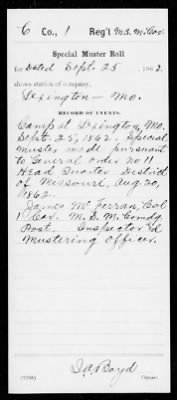 6 Co., 1 Reg't M.S. M. Cav.
Special Muster Roll
for Dated Sept. 25, 1862.
shows station of company,
Lexington - Mo.
RECORD OF EVENTS.
Camp at Lexington, Mo.
Sept. 25, 1862. Special
muster made pursuant
to General order no 11
Head Quater District
of Missouri, Aug. 20,
1862.
James McFerran, Col
1 Cav. M. S. M. Comdg
Post. Inspector &
Mustering Officer.
J. A. Boyd
Copyist.